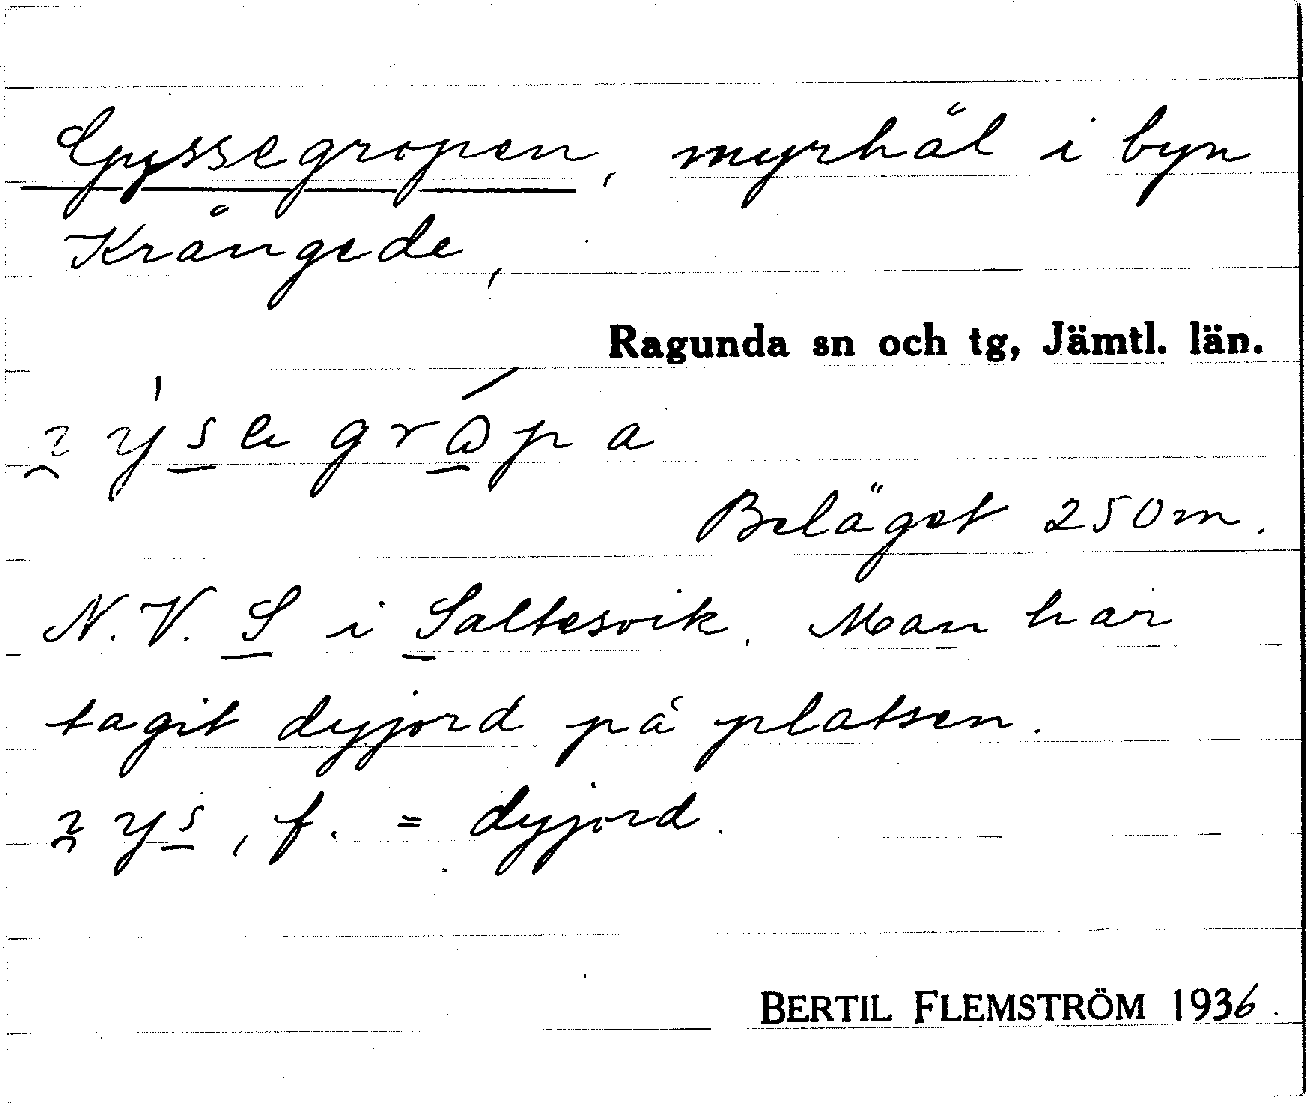 Gyssegropen, myrhål i byn
Krångede,
Ragunda sn och tg, Jämtl. län.
Beläget 250m.
N.V. S i Saltesvik. Man har
tagit dyjord på platsen.
, f. = dyjord.
BERTIL FLEMSTRÖM 1936.